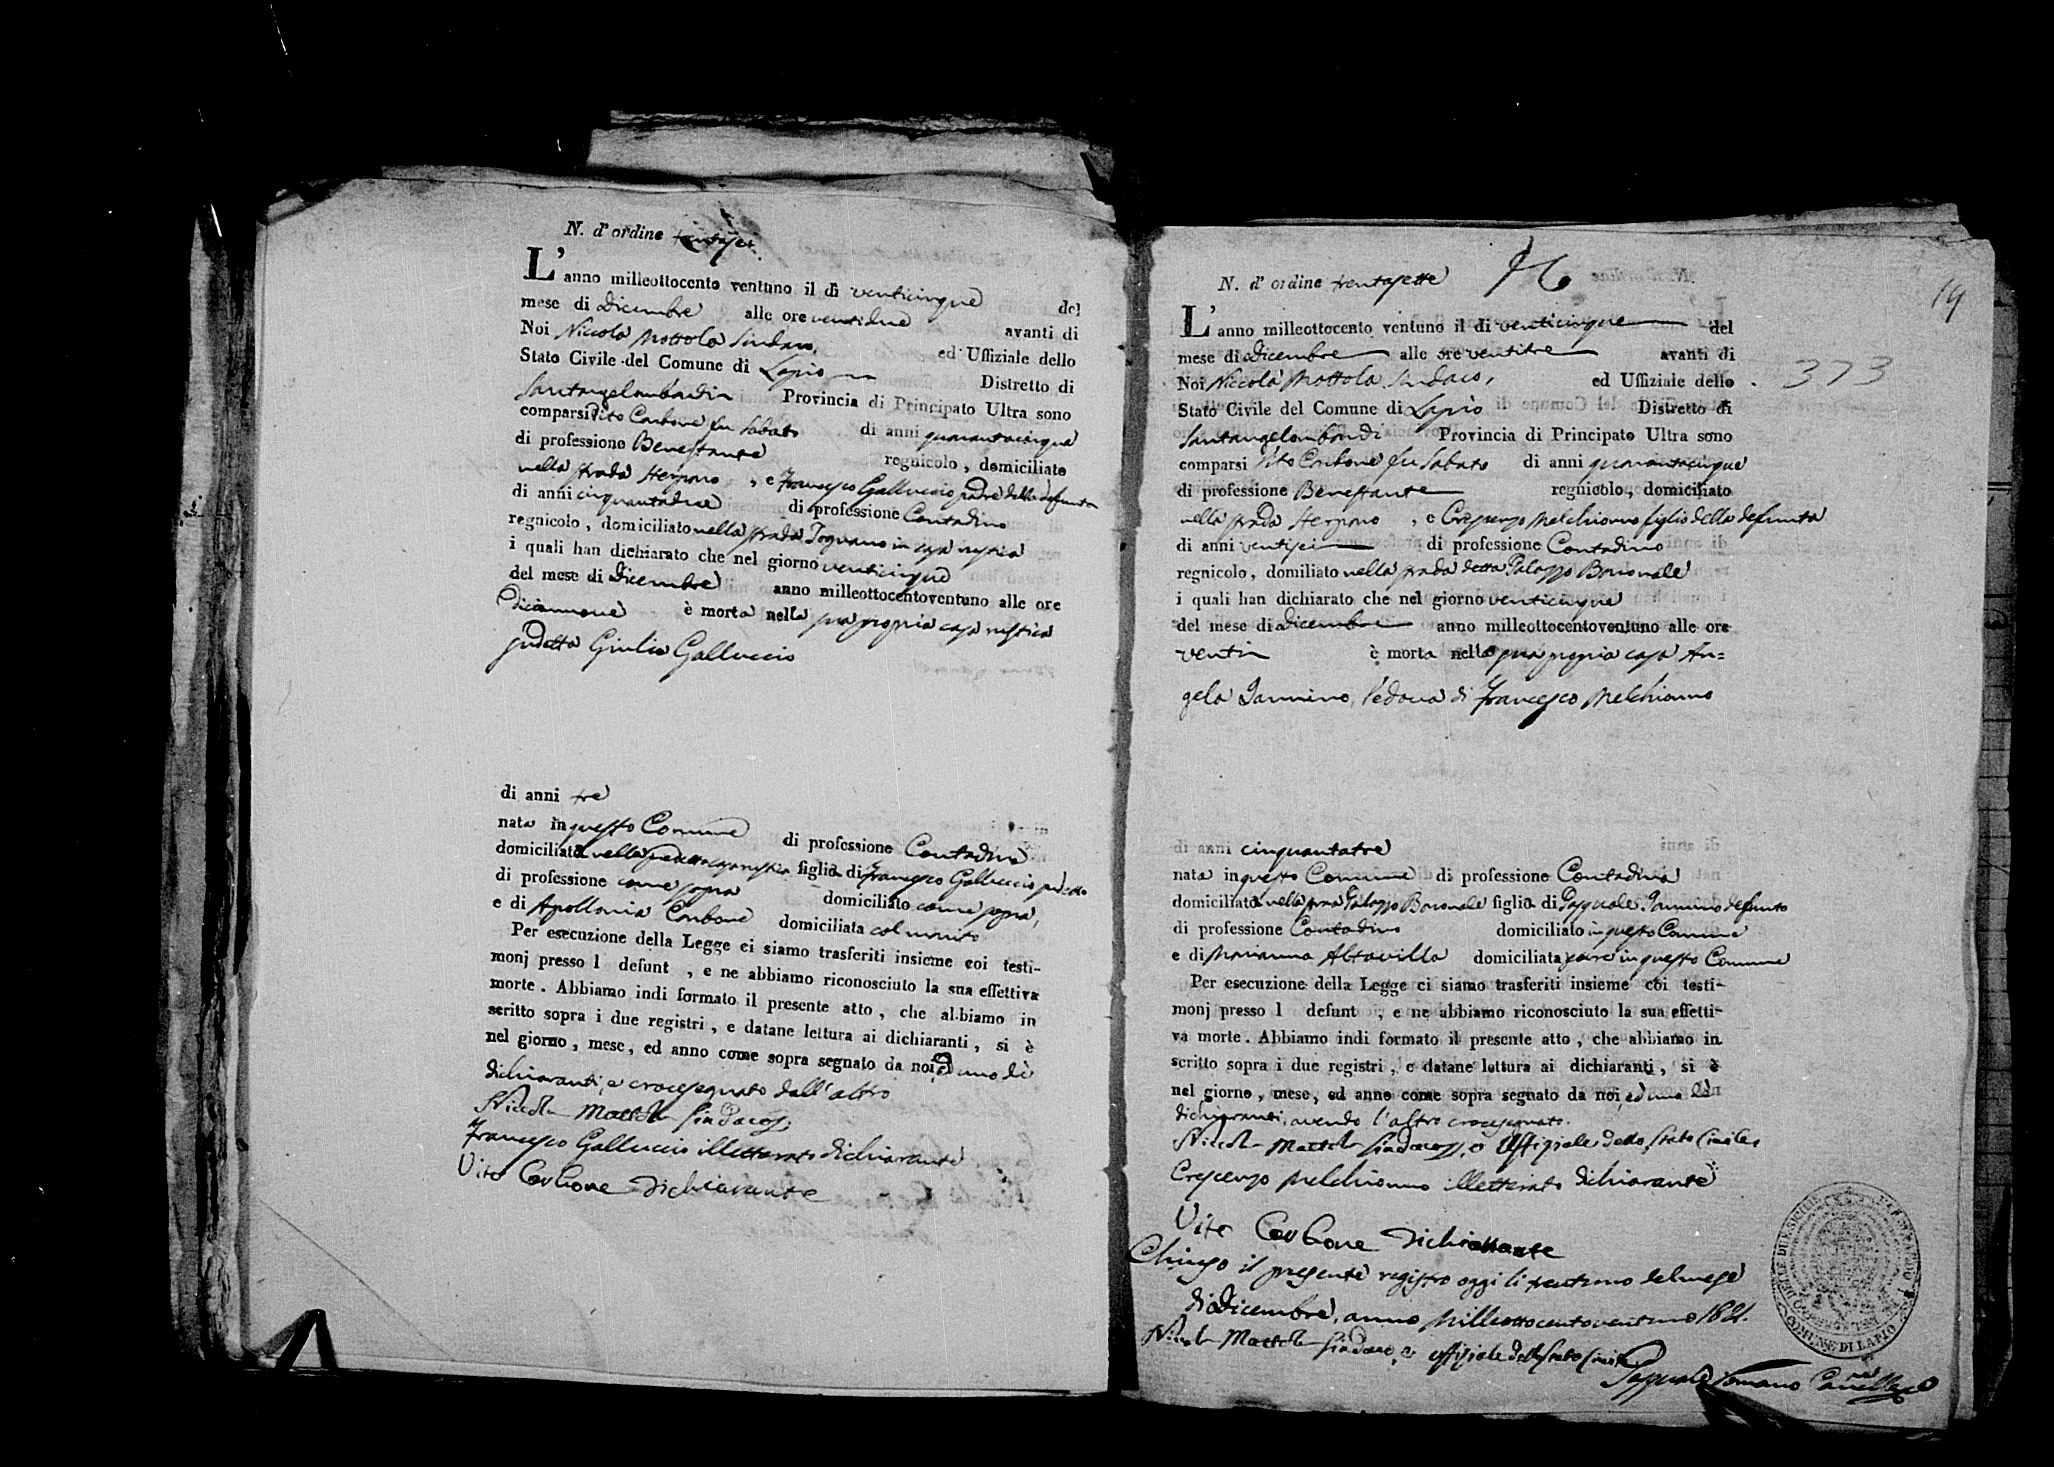 N. d'ordine trentasei
L'anno milleottocento ventuno il dì venticinque del
mese di Dicembre alle ore ventidue avanti di
Noi Niccola Mottola Sindaco, ed Uffiziale dello
Stato Civile del Comune di Lapio Distretto di
Santangelombardi Provincia di Principato Ultra sono
comparsi Vito Carbone fu Sabato di anni quarantacinque
di professione Benestante regnicolo, domiciliato
nella strada , e Francesco Galluccio padre della defunta
di anni cinquantadue di professione Contadino
regnicolo, domiciliato nella strada Tognano in casa rustica
i quali han dichiarato che nel giorno venticinque
del mese di Dicembre anno milleottocentoventuno alle ore
diciannove è morta nella sua propria casa rustica
sudetta Giulia Galluccio
di anni tre
nata in questo Comune di professione Contadina
domiciliata nella casa rustica figlia di Francesco Galluccio
di professione come sopra domiciliato come sopra,
e di Apollonia Carbone domiciliata col marito
Per esecuzione della Legge ci siamo trasferiti insieme coi testi-
monj presso l defunt , e ne abbiamo riconosciuto la sua effettiva
morte. Abbiamo indi formato il presente atto, che abbiamo in
scritto sopra i due registri, e datane lettura ai dichiaranti, si è
nel giorno, mese, ed anno come sopra segnato da noi, ed uno de'
dichiaranti, e crocesegnato dall'altro
Niccola Mottola Sindaco
Francesco Galluccio illetterato dichiarante
Vito Carbone dichiarante
N. d'ordine trentasette
19
L'anno milleottocento ventuno il di venticinque del
mese di Dicembre alle ore ventitre avanti di
373
Noi Niccola Mottola Sindaco, ed Uffiziale dello
Stato Civile del Comune di Lapio Distretto di
Santangelombardi Provincia di Principato Ultra sono
comparsi Vito Carbone fu Sabato di anni quarantacinque
di professione Benestante regnicolo, domiciliato
nella strada , e Crescenzo Melchionno figlio della defunta
di anni ventisei di professione Contadino
regnicolo, domiliato nella strada detta Palazzo Baronale
i quali han dichiarato che nel giorno venticinque
del mese di Dicembre anno milleottocentoventuno alle ore
venti è morta nella sua propria casa An=
gela Iannino, Vedova di Francesco Melchionno
di anni cinquantatre
nata in questo Comune di professione Contadina
domiciliata nella Palazzo Baronale figlia di Pasquale Iannino defunto
di professione Contadino domiciliato in questo Comune
e di Marianna Altavilla domiciliata pure in questo Comune
Per esecuzione della Legge ci siamo trasferiti insieme coi testi-
monj presso l defunt , e ne abbiamo riconosciuto la sua effetti-
va morte. Abbiamo indi formato il presente atto, che abbiamo in
scritto sopra i due registri, e datane lettura ai dichiaranti, si è
nel giorno, mese, ed anno come sopra segnato da noi, ed uno de'
dichiaranti, avendo l'altro crocesegnato.
Niccola Mottola Sindaco, e Uffiziale dello Stato Civile
Crescenzo Melchionno illetterato dichiarante
Vito Carbone dichiarante
Chiuso il presente registro oggi li trentuno del mese
di Dicembre, anno Milleottocentoventuno 1821.
Niccola Mottola Sindaco, e uffiziale dello Stato Civile
Pasquale Romano
COMUNE DI LAPIO